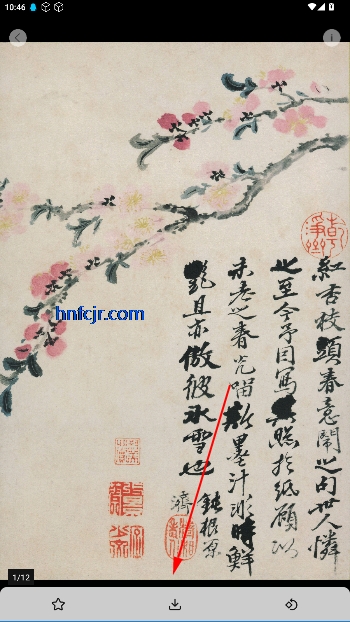 10:46
hnfcjr.com
紅杏枝頭春意鬧之句世人憐
之至今予因寫其照於紙顧以
未老之春光喵新墨汁彩時鮮
艷且亦傲彼冰雪也
鈍根原
濟
1/12